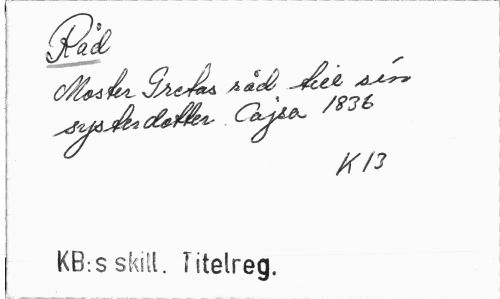 Råd
Moster Gretas råd till sin
systerdotter Cajsa 1836
K 13
KB:s skill. Titelreg.